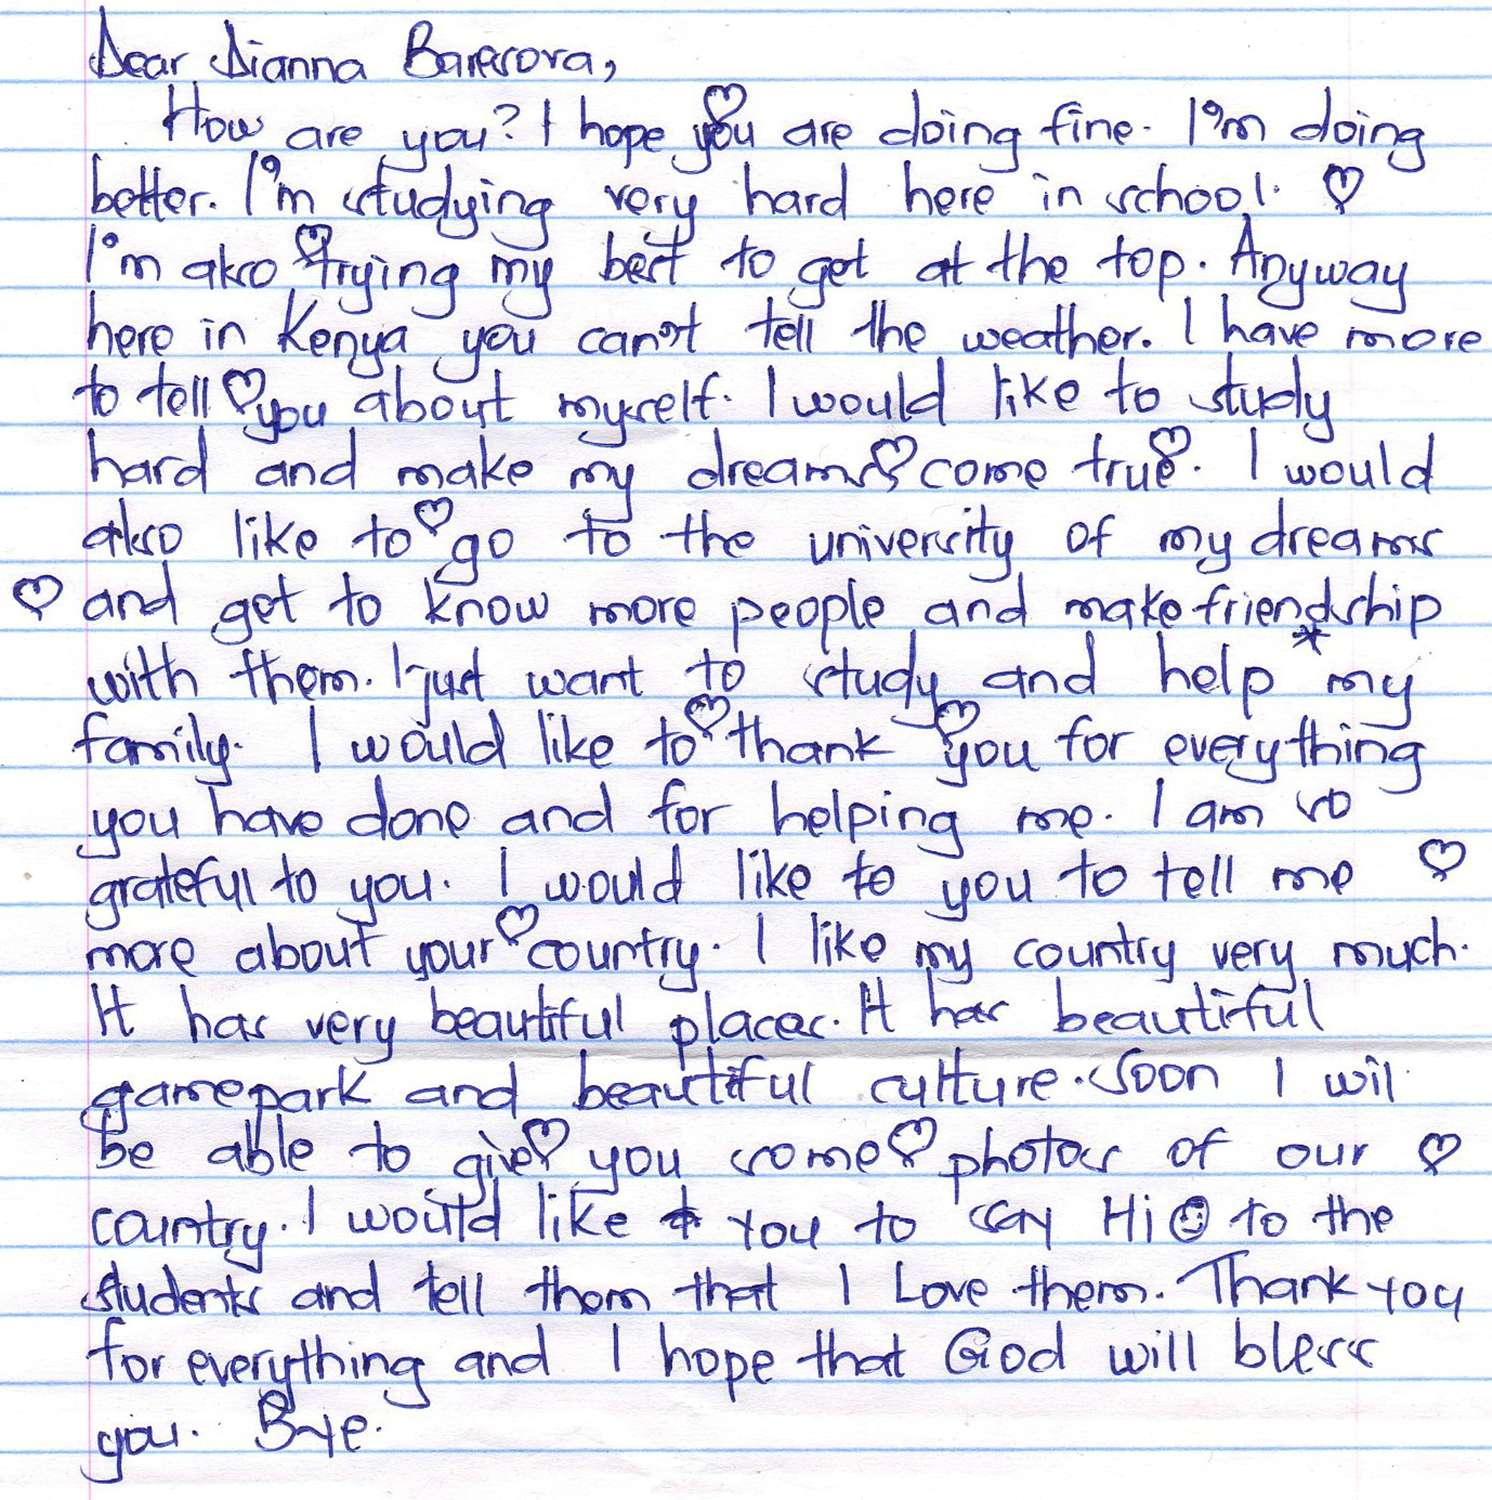 Dear Dianna Baresova,
How are you? I hope you are doing fine. I'm doing
better. I'm studying very hard here in school.
I'm also trying my best to get at the top. Anyway
here in Kenya you can't tell the weather. I have more
to tell you about myself. I would like to study
hard and make my dreams come true. I would
also like to go to the university of my dreams
and get to know more people and make friendship
with them. I just want to study and help my
family. I would like to thank you for everything
you have done and for helping me. I am so
grateful to you. I would like to you to tell me
more about your country. I like my country very much.
It has very beautiful places. It has beautiful
gamepark and beautiful culture. Soon I wil
be able to give you some photos of our
country. I would like you to say Hi to the
students and tell them that I Love them. Thank you
for everything and I hope that God will bless
you. Bye.